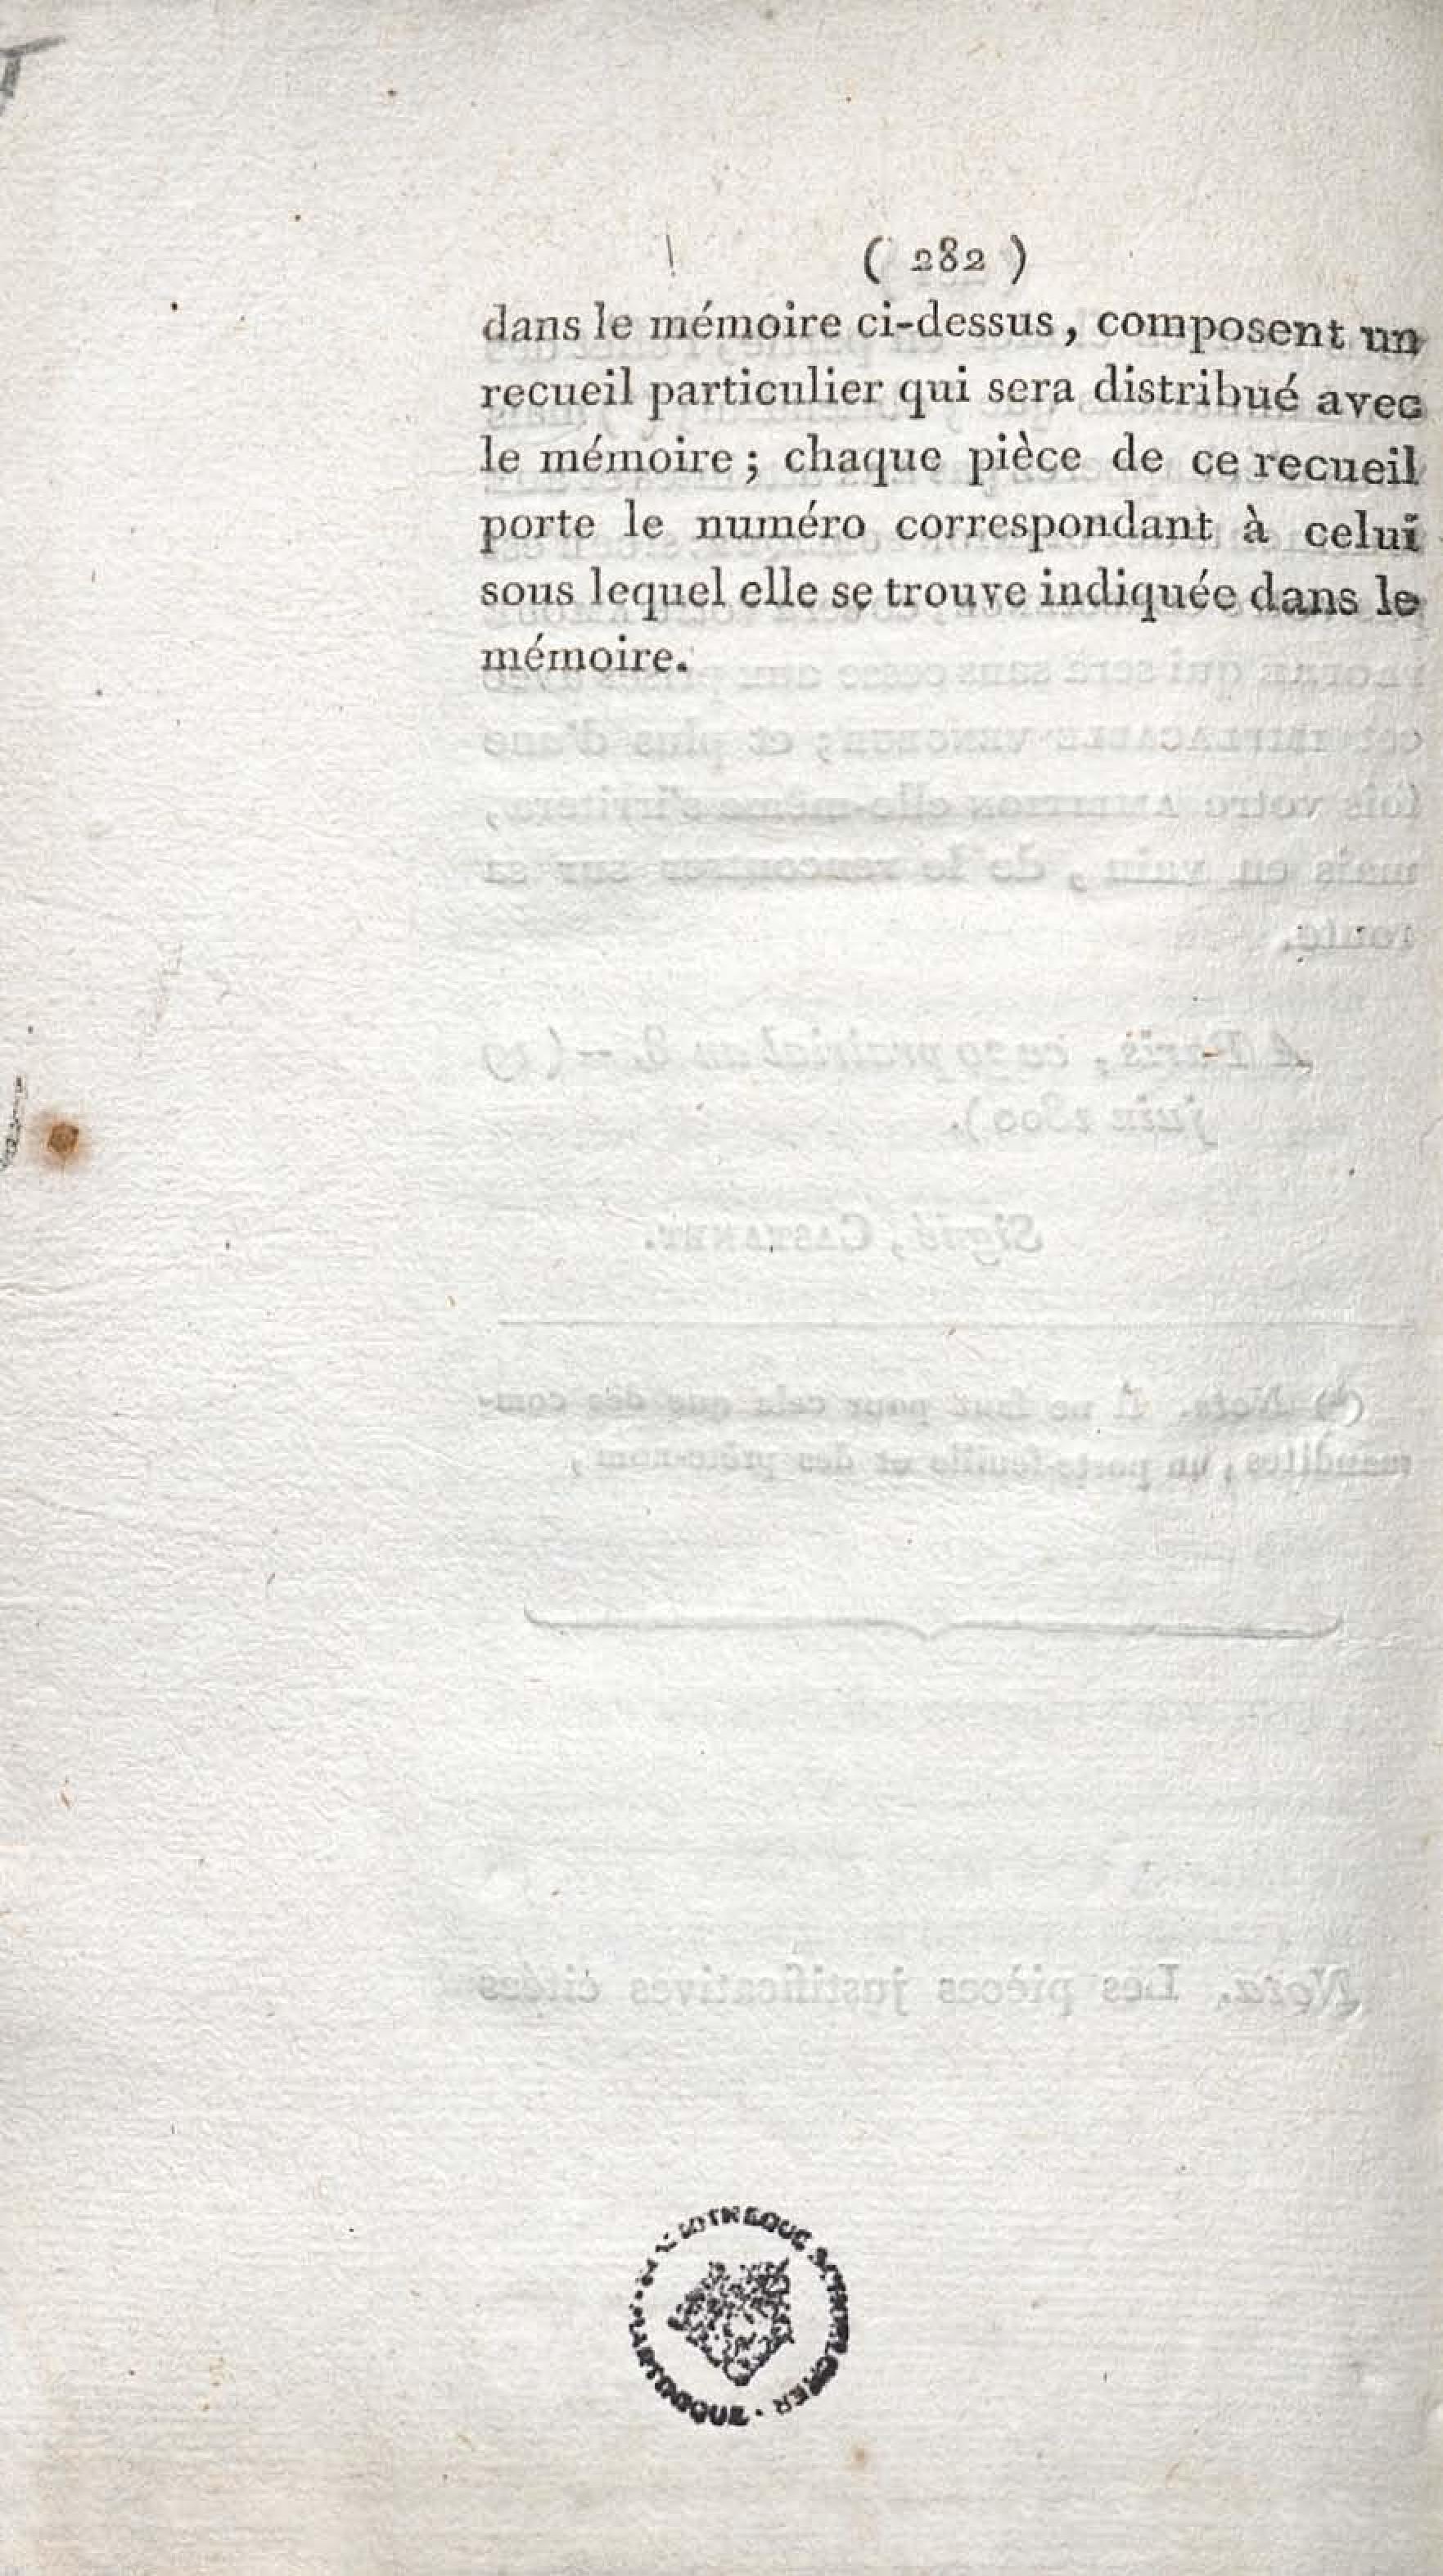 ( 282 )
dans le mémoire ci-dessus, composent un
recueil particulier qui sera distribué avec
le mémoire ; chaque pièce de ce recueil
porte le numéro correspondant à celui
sous lequel elle se trouve indiquée dans le
mémoire.